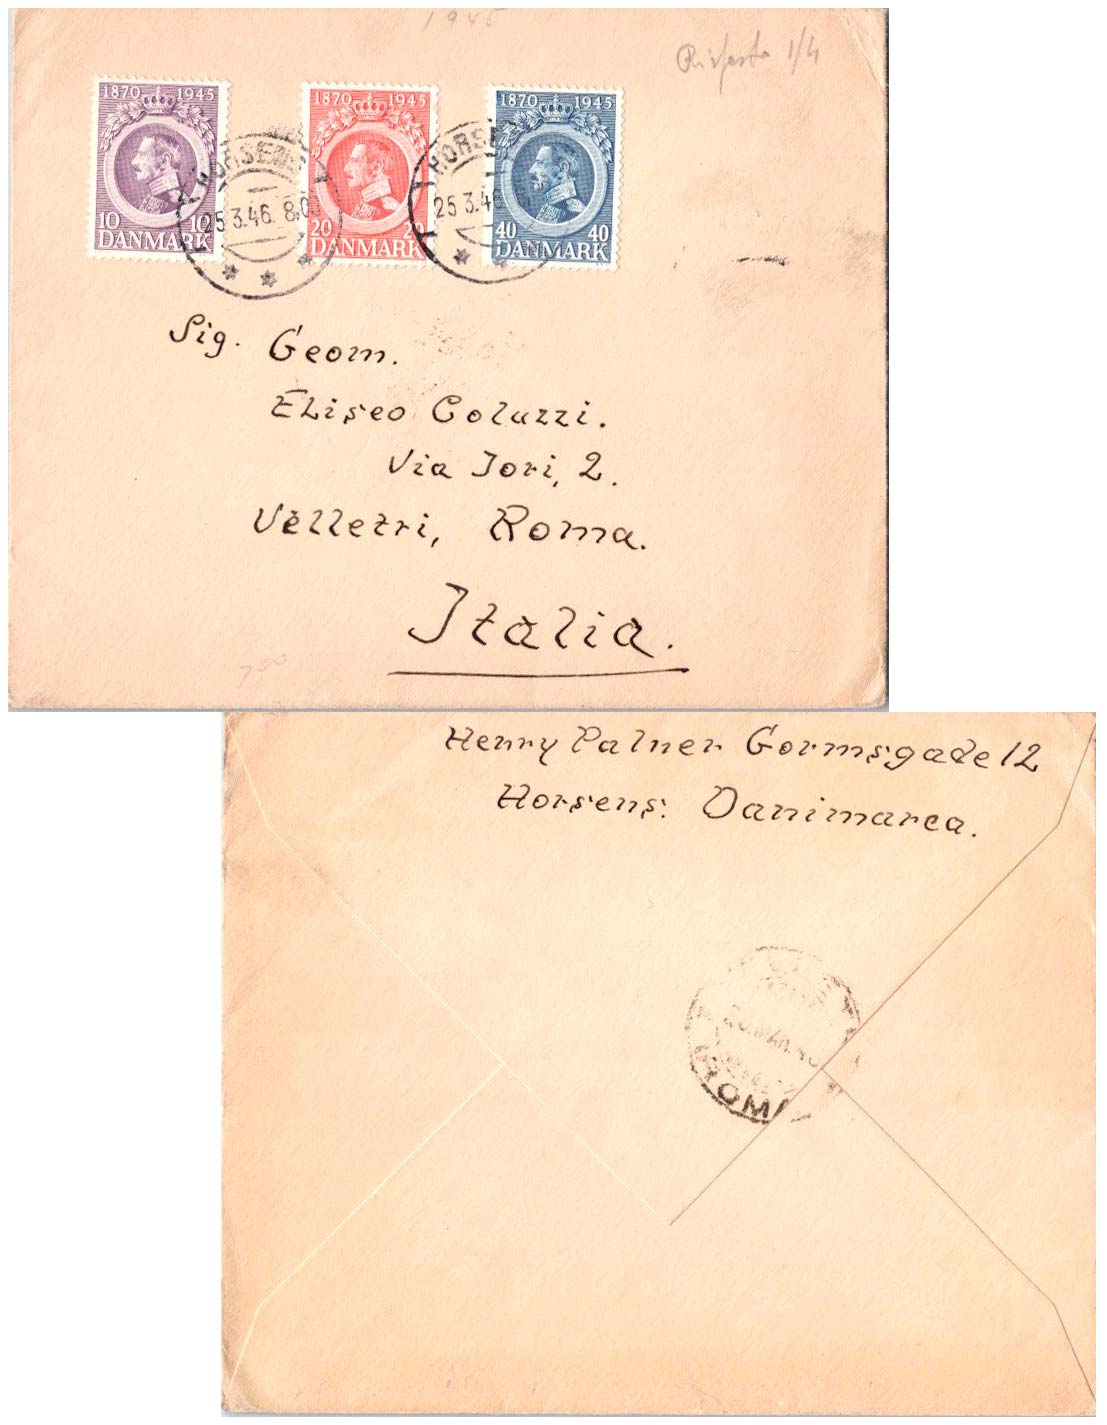 1945
Risposto 1/4
1870 1945
10 10
DANMARK
1870 1945
20 20
DANMARK
1870 1945
40 40
DANMARK
HORSENS
25.3.46. 8,00
HORSENS
25.3.46
Sig. Geom.
Eliseo Coluzzi.
Via Jori, 2.
Velletri, Roma.
Italia.
Henry Palner Gormsgade 12
Horsens: Danimarca.
ROMA